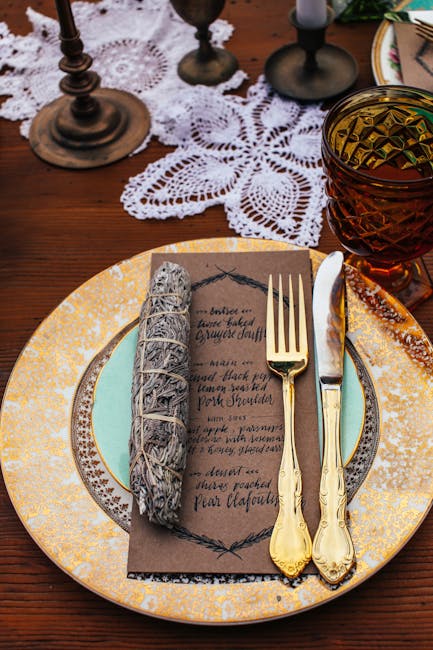 entree
twice baked
Gruyere Souffl
main
black pep
lemon roasted
Pork Shoulder
with sides
apple, parsnip
with rosemar
honey, glazed car
dessert
shiraz poached
Pear Clafoutis